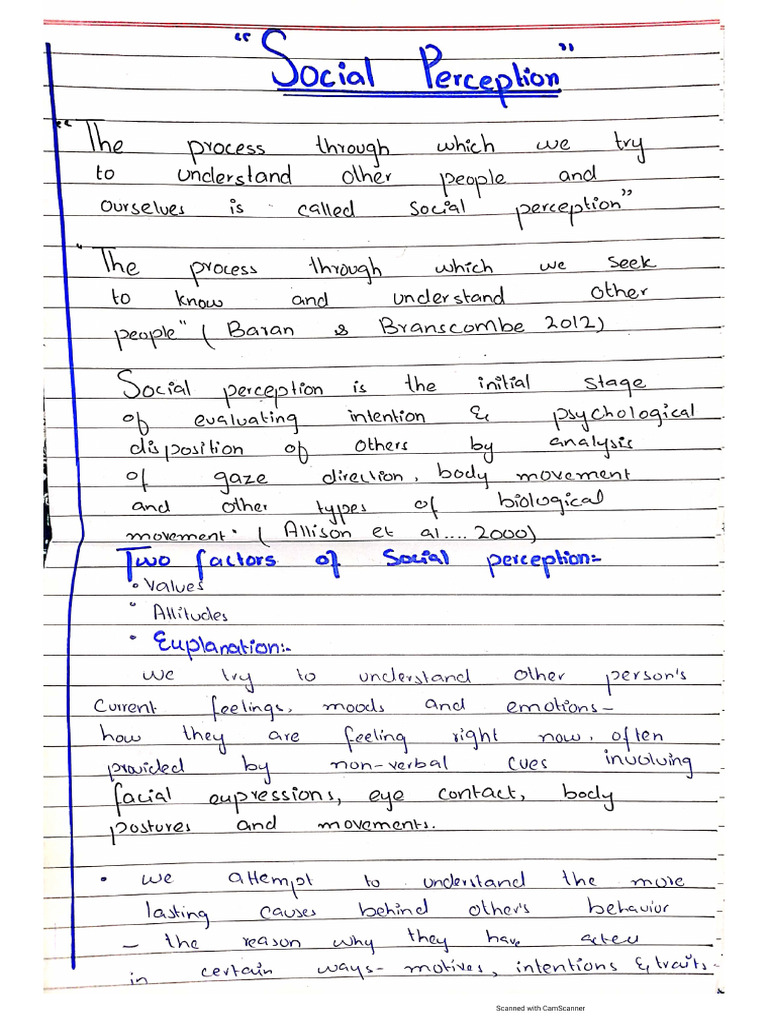 "Social Perception"
"The process through which we try
to understand other people and
ourselves is called social perception"
"The process through which we seek
to know and understand other
people" ( Baran & Branscombe 2012)
Social perception is the initial stage
of evaluating intention & psychological
disposition of others by analysis
of gaze direction, body movement
and other types of biological
movement. ( Allison et al.... 2000)
Two factors of Social perception:-
• Values
• Attitudes
• Explanation:-
we try to understand other person's
current feelings, moods and emotions-
how they are feeling right now, often
provided by non-verbal cues involving
facial expressions, eye contact, body
postures and movements.
• we attempt to understand the more
lasting causes behind other's behavior
- the reason why they have acted
in certain ways- motives, intentions & traits.
Scanned with CamScanner